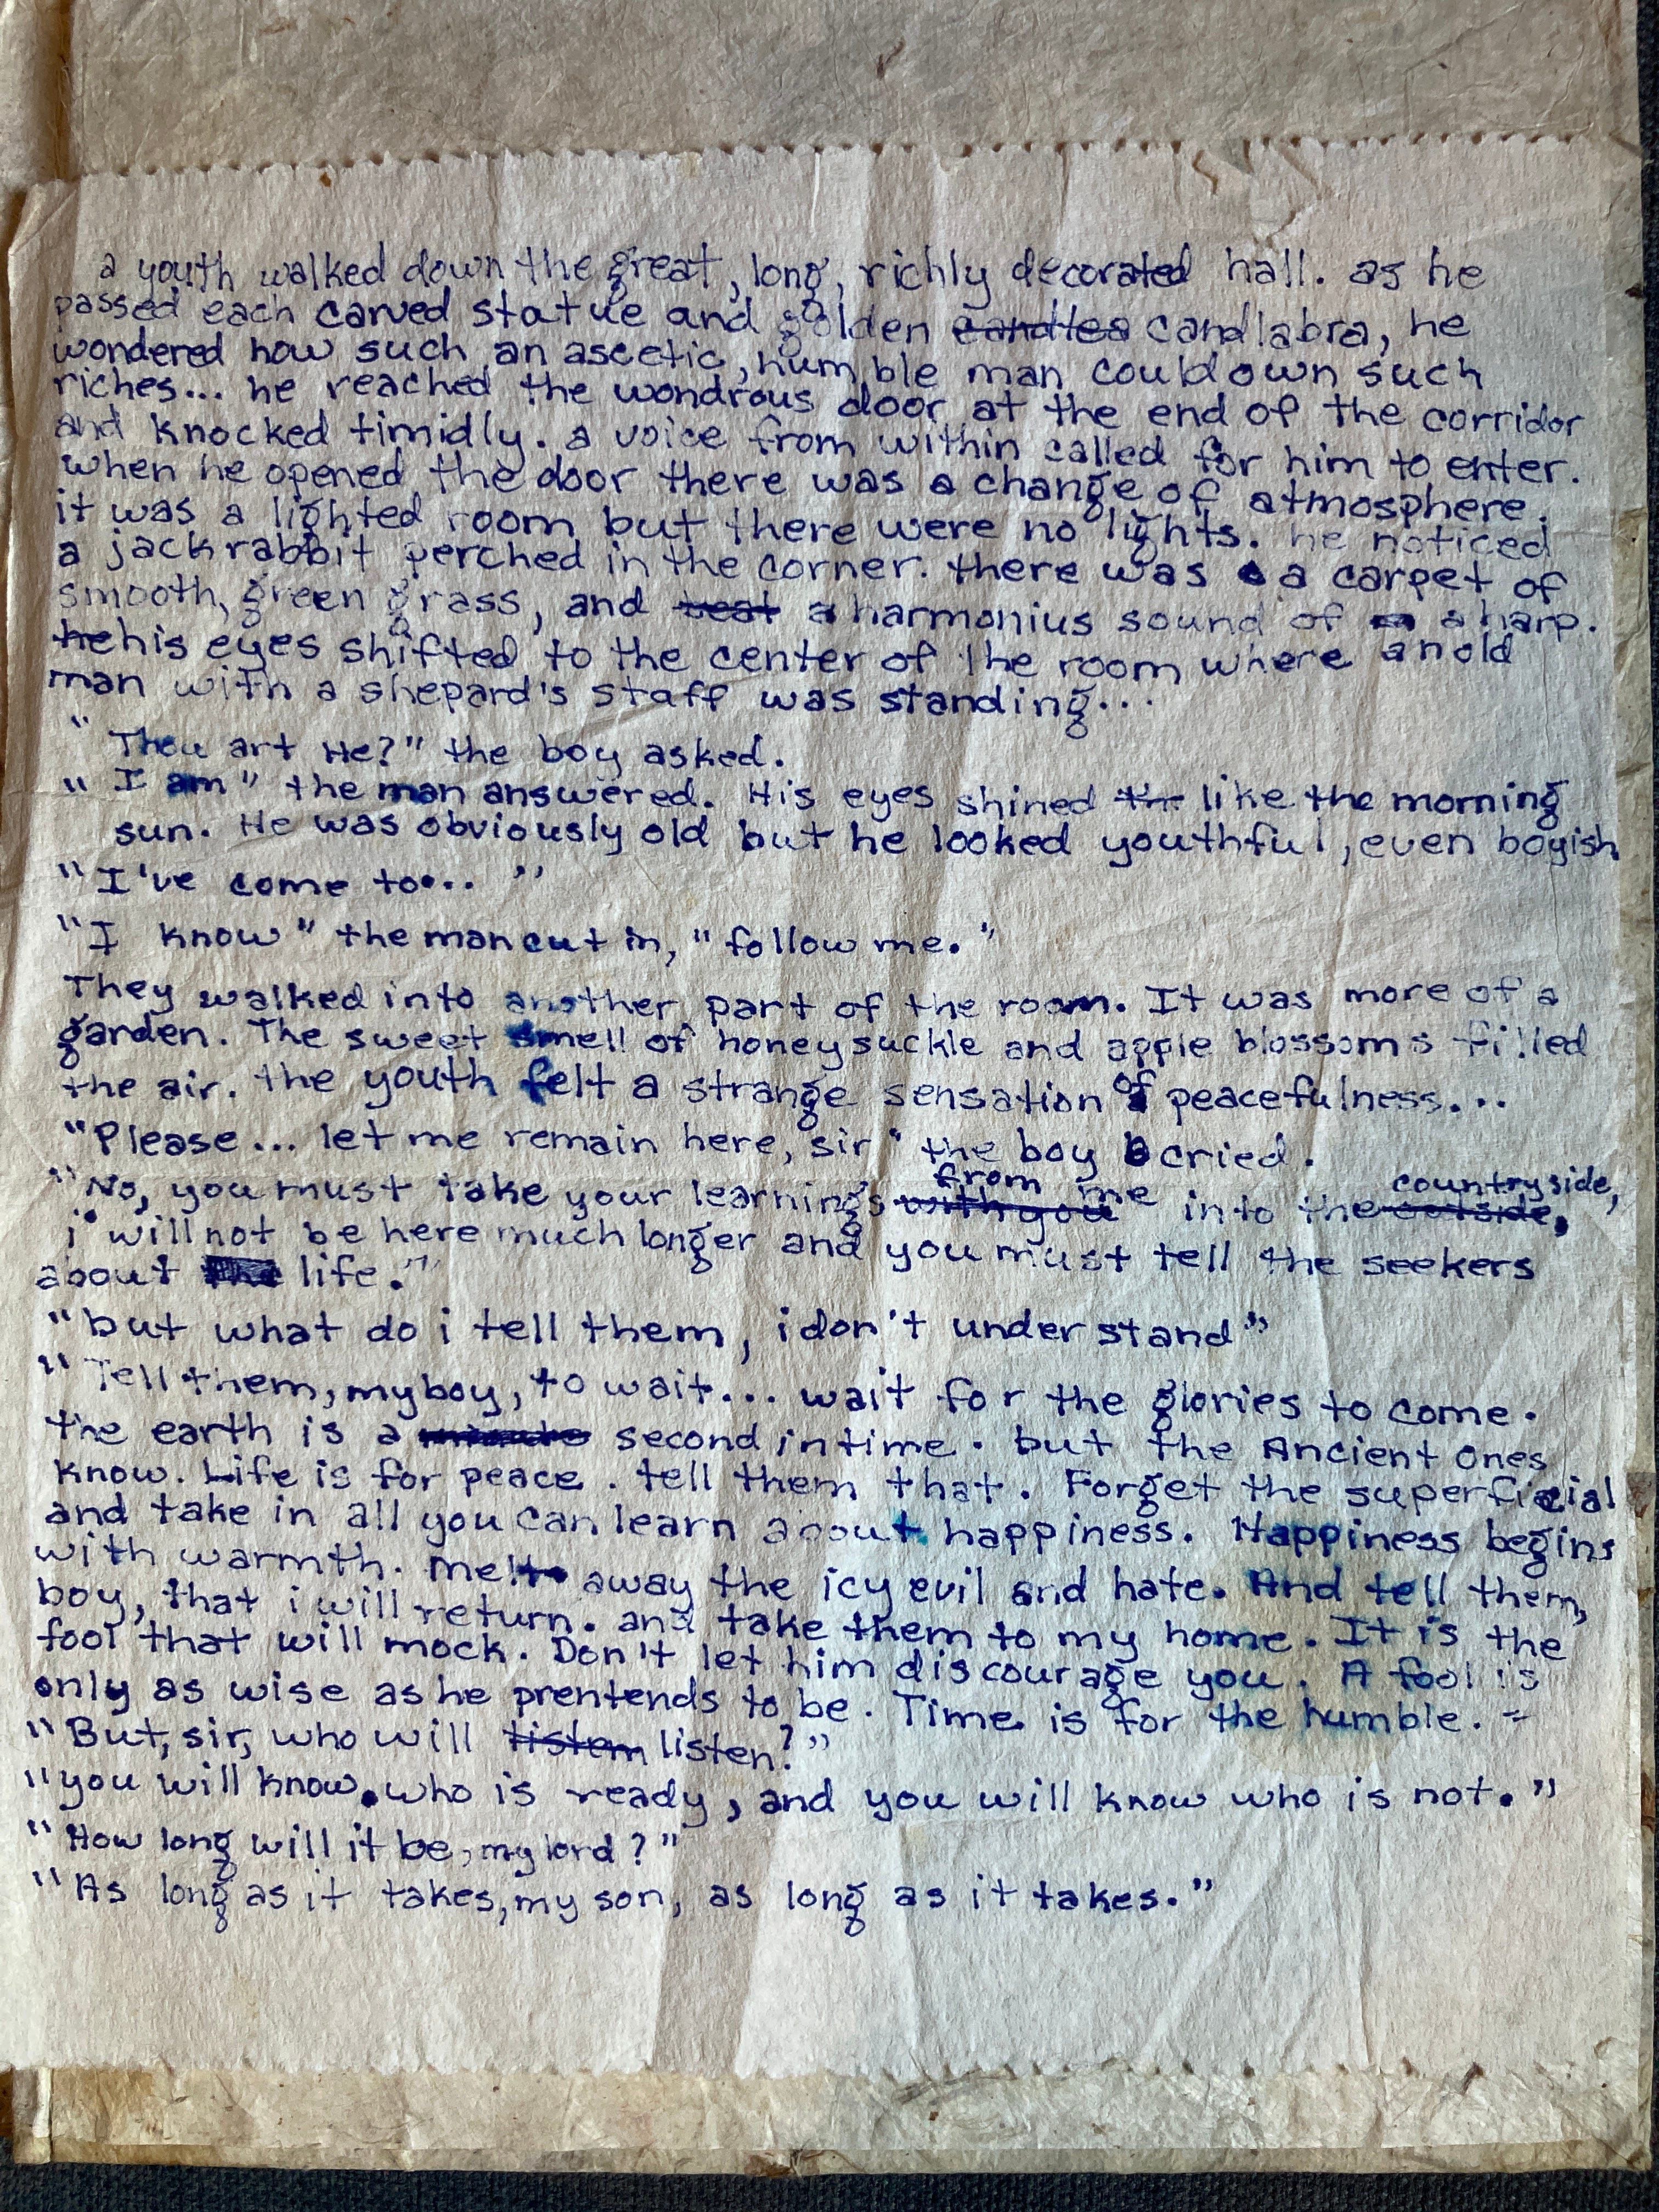 a youth walked down the great, long, richly decorated hall. as he
passed each carved statue and golden candles candlabra, he
wondered how such an ascetic, humble man could own such
riches... he reached the wondrous door at the end of the corridor
and knocked timidly. a voice from within called for him to enter.
when he opened the door there was a change of atmosphere.
it was a lighted room but there were no lights. he noticed
a jackrabbit perched in the corner. there was a carpet of
smooth, green grass, and a harmonius sound of a harp.
he his eyes shifted to the center of the room where an old
man with a shepard's staff was standing...
"Thou art He?" the boy asked.
"I am" the man answered. His eyes shined the like the morning
sun. He was obviously old but he looked youthful, even boyish
"I've come to... "
"I know" the man cut in, "follow me."
They walked into another part of the room. It was more of a
garden. The sweet smell of honeysuckle and apple blossoms filled
the air. the youth felt a strange sensation of peacefulness...
"Please... let me remain here, sir" the boy cried.
from me countryside,
"No, you must take your learnings with you into the outside,
i will not be here much longer and you must tell the seekers
about life."
"but what do i tell them, i don't understand"
"Tell them, my boy, to wait... wait for the glories to come.
the earth is a minute second in time. but the Ancient ones
know. Life is for peace. tell them that. Forget the superficial
and take in all you can learn about happiness. Happiness begins
with warmth. Melt away the icy evil and hate. And tell them,
boy, that i will return. and take them to my home. It is the
fool that will mock. Don't let him discourage you. A fool is
only as wise as he prentends to be. Time is for the humble. "
"But, sir, who will listem listen?"
"you will know who is ready, and you will know who is not."
"How long will it be, my lord?"
"As long as it takes, my son, as long as it takes."